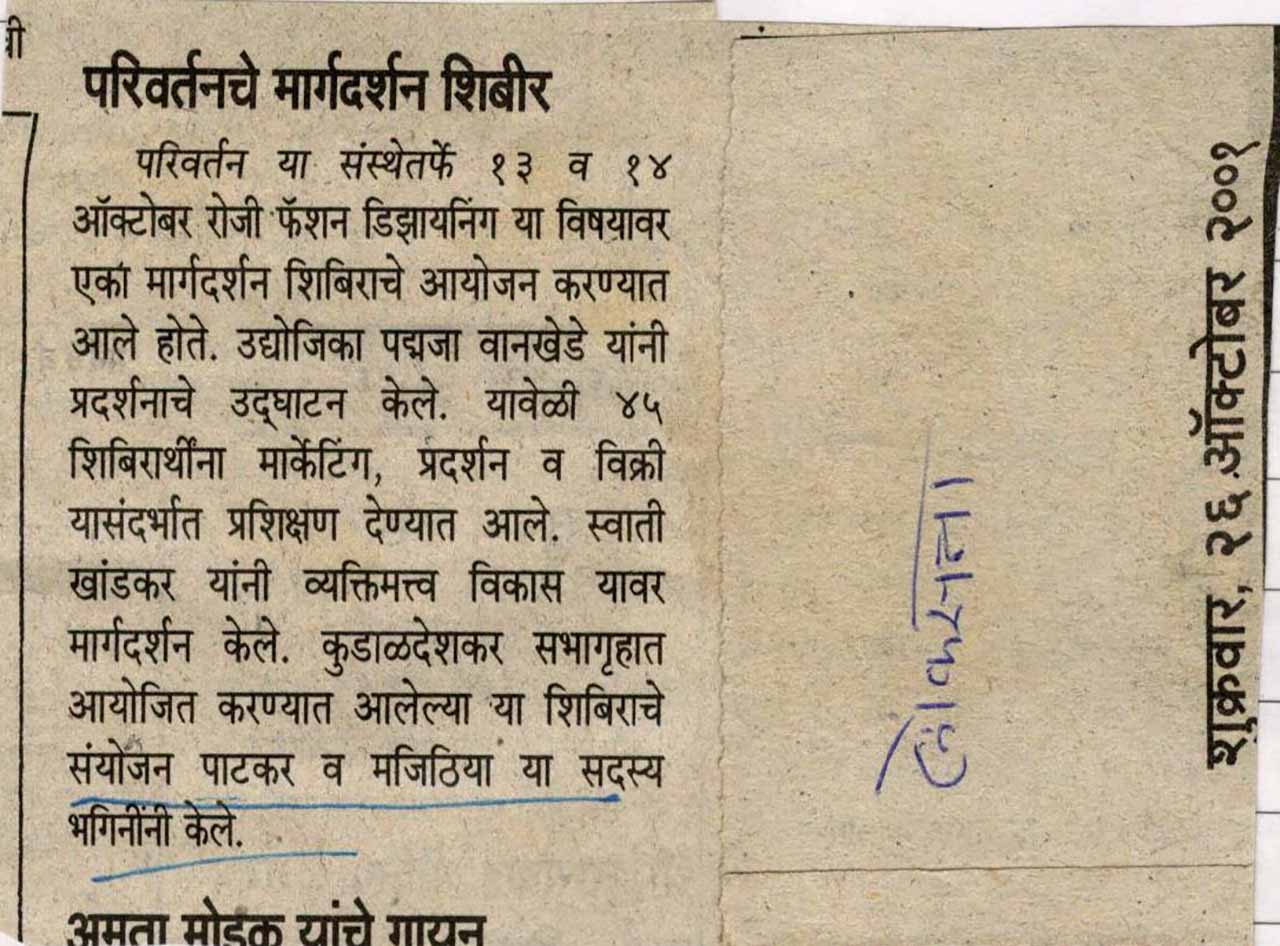 परिवर्तनचे मार्गदर्शन शिबीर
परिवर्तन या संस्थेतर्फे १३ व १४
ऑक्टोबर रोजी फॅशन डिझायनिंग या विषयावर
एका मार्गदर्शन शिबिराचे आयोजन करण्यात
आले होते. उद्योजिका पद्मजा वानखेडे यांनी
प्रदर्शनाचे उद्‌घाटन केले. यावेळी ४५
शिबिरार्थींना मार्केटिंग, प्रदर्शन व विक्री
यासंदर्भात प्रशिक्षण देण्यात आले. स्वाती
खांडकर यांनी व्यक्तिमत्त्व विकास यावर
मार्गदर्शन केले. कुडाळदेशकर सभागृहात
आयोजित करण्यात आलेल्या या शिबिराचे
संयोजन पाटकर व मजिठिया या सदस्य
भगिनींनी केले.
मोडक यांचे गायन
लोकसत्ता
शुक्रवार, २६ ऑक्टोबर २००१